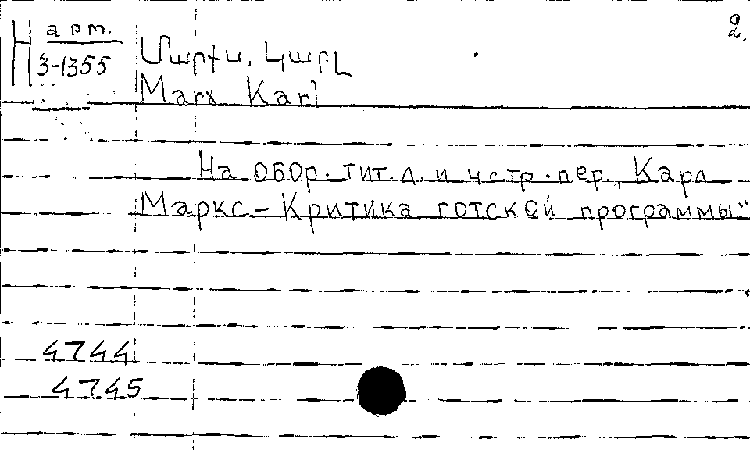 2.
Н арм.
3-1355
Մարքս, Կարլ
Marx Karl
На обор. тит. л. и 4 стр. пер., Карл
Маркс – Критика готской программы"
4744
4745